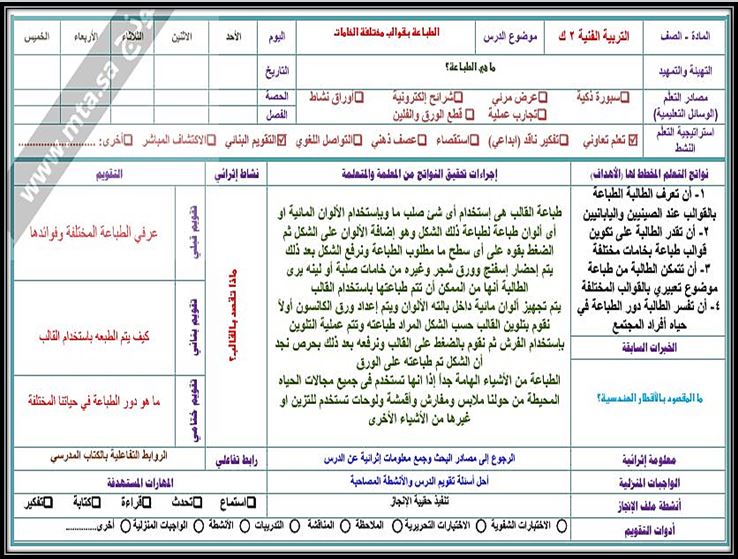 المادة - الصف
التربية الفنية ٢ ك
موضوع الدرس
الطباعة بقوالب مختلفة الخامات
اليوم
الأحد
الاثنين
الثلاثاء
الأربعاء
الخميس
التهيئة والتمهيد
ما هي الطباعة؟
التاريخ
مصادر التعلم
(الوسائل التعليمية)
سبورة ذكية
عرض مرئي
شرائح إلكترونية
أوراق نشاط
تجارب عملية
قطع الورق والفلين
الحصة
الفصل
استراتيجية التعلم
النشط
تعلم تعاوني
تفكير ناقد (ابداعي)
استقصاء
عصف ذهني
التواصل اللغوي
التقويم البنائي
الاكتشاف المباشر
أخرى: ..............................
نواتج التعلم المخطط لها (الأهداف)
إجراءات تحقيق النواتج من المعلمة والمتعلمة
نشاط إثرائي
التقويم
١- أن تعرف الطالبة الطباعة
بالقوالب عند الصينيين واليابانيين
٢- أن تقدر الطالبة على تكوين
قوالب طباعة بخامات مختلفة
٣- أن تتمكن الطالبة من طباعة
موضوع تعبيري بالقوالب المختلفة
٤- أن تفسر الطالبة دور الطباعة في
حياه أفراد المجتمع
الخبرات السابقة
ما المقصود بالأقطار الهندسية؟
طباعة القالب هى إستخدام أى شئ صلب ما وبإستخدام الألوان المائية او
أى ألوان طباعة لطباعة ذلك الشكل وهو إضافة الألوان على الشكل ثم
الضغط بقوه على أى سطح ما مطلوب الطباعة ونرفع الشكل بعد ذلك
يتم إحضار إسفنج وورق شجر وغيره من خامات صلبة أو لينه يرى
الطالبة أنها من الممكن أن تتم طباعتها باستخدام القالب
يتم تجهيز ألوان مائية داخل بالته الألوان ويتم إعداد ورق الكانسون أولاً
نقوم بتلوين القالب حسب الشكل المراد طباعته وتتم عملية التلوين
بإستخدام الفرش ثم نقوم بالضغط على القالب ونرفعه بعد ذلك بحرص نجد
أن الشكل تم طباعته على الورق
الطباعة من الأشياء الهامة جداً إذا انها تستخدم فى جميع مجالات الحياه
المحيطة من حولنا ملابس ومفارش وأقمشة ولوحات تستخدم للتزين او
غيرها من الأشياء الأخرى
ماذا تقصد بالقالب؟
تقويم قبلي
عرفي الطباعة المختلفة وفوائدها
تقويم بنائي
كيف يتم الطبعه باستخدام القالب
تقويم ختامي
ما هو دور الطباعة في حياتنا المختلفة
معلومة إثرائية
الرجوع إلى مصادر البحث وجمع معلومات إثرائية عن الدرس
رابط تفاعلي
الروابط التفاعلية بالكتاب المدرسي
الواجبات المنزلية
أحل أسئلة تقويم الدرس والأنشطة المصاحبة
المهارات المستهدفة
أنشطة ملف الإنجاز
تنفيذ حقيبة الإنجاز
استماع
تحدث
قراءة
كتابة
تفكير
أدوات التقويم
الاختبارات الشفوية
الاختبارات التحريرية
الملاحظة
المناقشة
التدريبات
الأنشطة
الواجبات المنزلية
أخرى..............
www.mta.sa